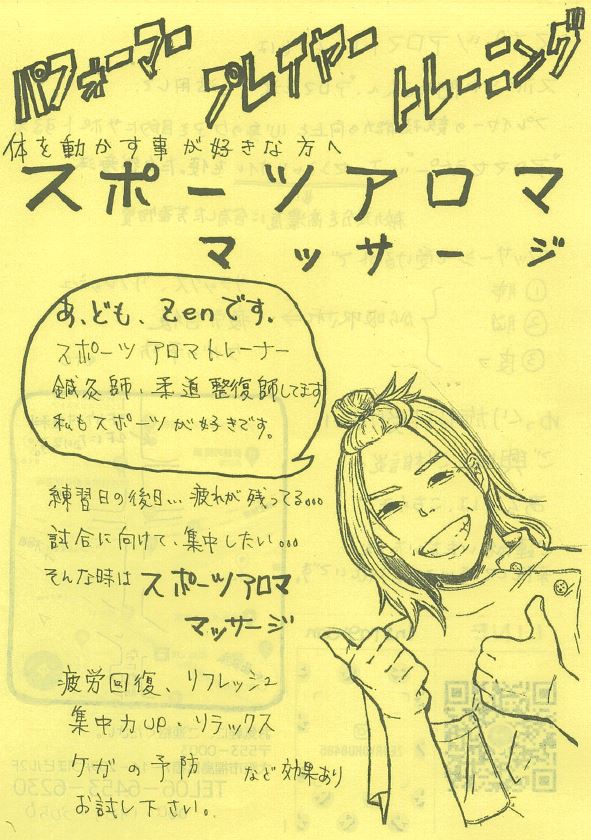 パフォーマー プレイヤー トレーニング
体を動かす事が好きな方へ
スポーツアロマ
マッサージ
あ、ども、Zenです。
スポーツアロマトレーナー
鍼灸師、柔道整復師してます
私もスポーツが好きです。
練習日の後日... 疲れが残ってる...
試合に向けて、集中したい...
そんな時は スポーツアロマ
マッサージ
疲労回復、リフレッシュ
集中力UP、リラックス
ケガの予防 など効果あり
お試し下さい。
〒553-0003
TEL06-6453-6230